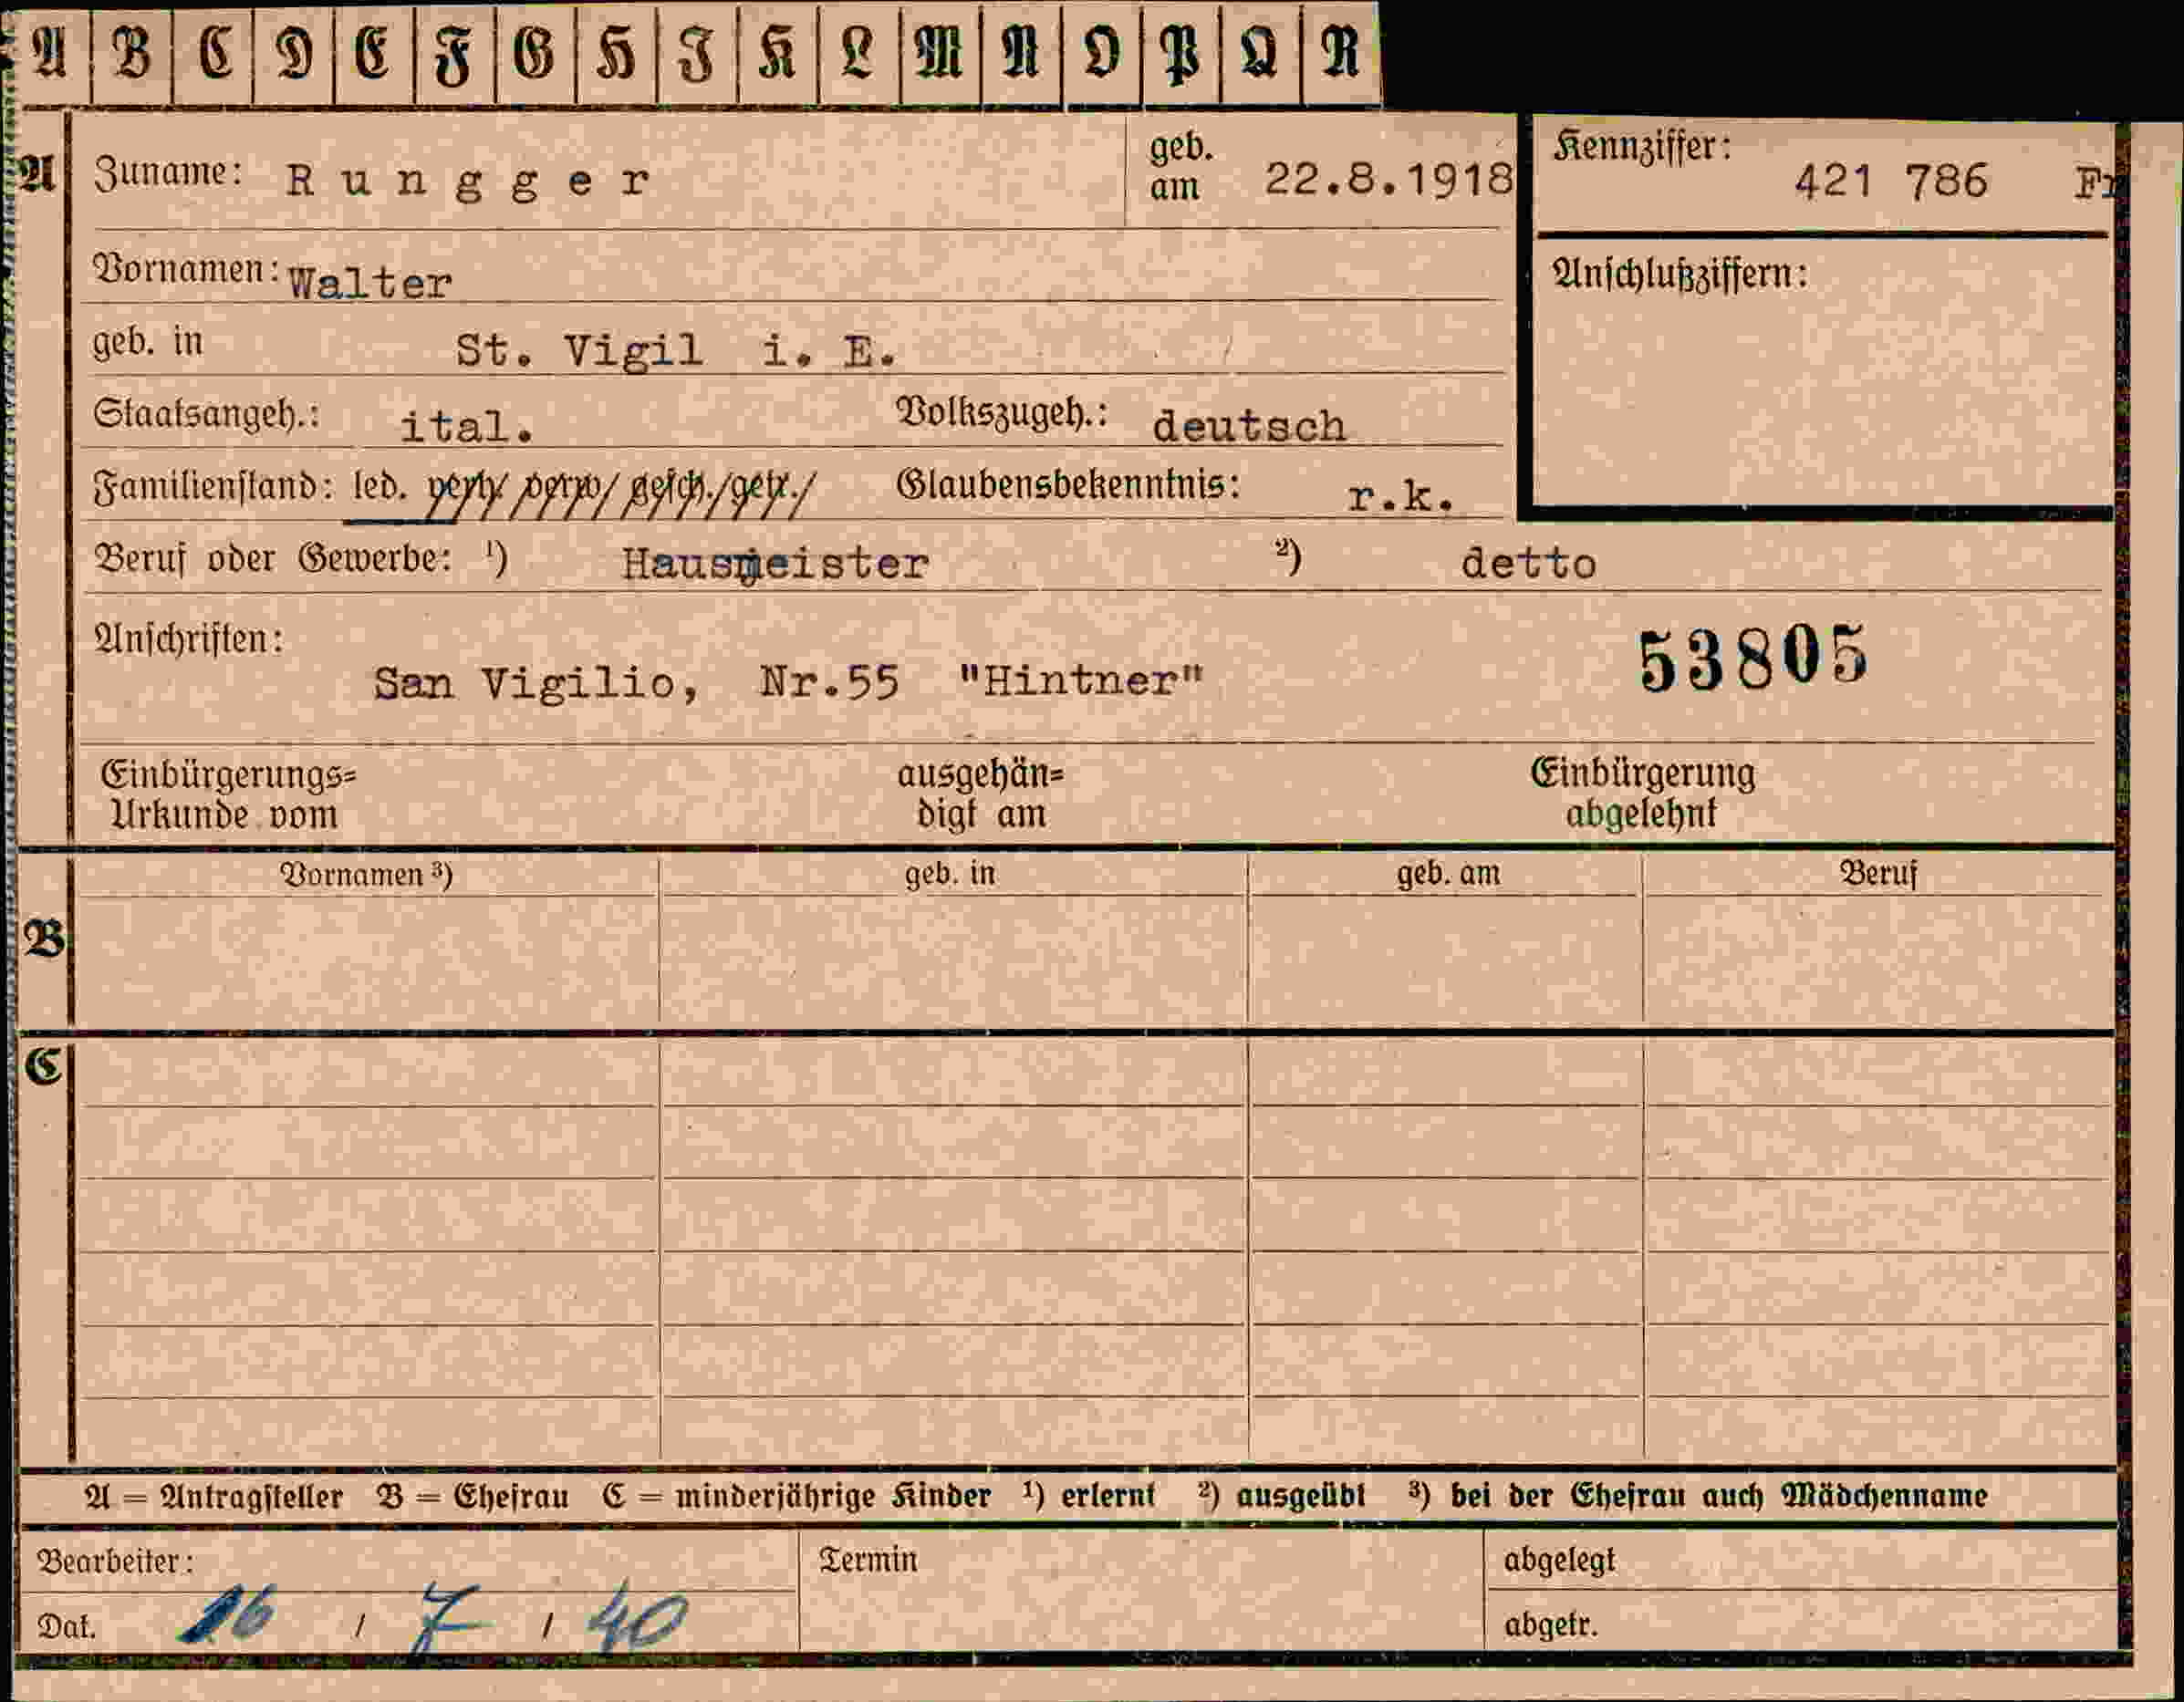 A B C D E F G H I K L M N O P Q R
A Zuname: Rungger geb. am 22.8.1918 Kennziffer: 421 786 Fr
Vornamen: Walter Anschlußziffern:
geb. in St. Vigil i. E.
Staatsangeh.: ital. Volkszugeh.: deutsch
Familienstand: led. verh./ verw./ gesch./getr./ Glaubensbekenntnis: r.k.
Beruf oder Gewerbe: ¹) Hausmeister ²) detto
Anschriften: 53805
San Vigilio, Nr.55 "Hintner"
Einbürgerungs= ausgehän= Einbürgerung
Urkunde vom digt am abgelehnt
Vornamen ³) geb. in geb. am Beruf
B
C
A = Antragsteller B = Ehefrau C = minderjährige Kinder ¹) erlernt ²) ausgeübt ³) bei der Ehefrau auch Mädchenname
Bearbeiter: Termin abgelegt
Dat. 16 / 7 / 40 abgetr.